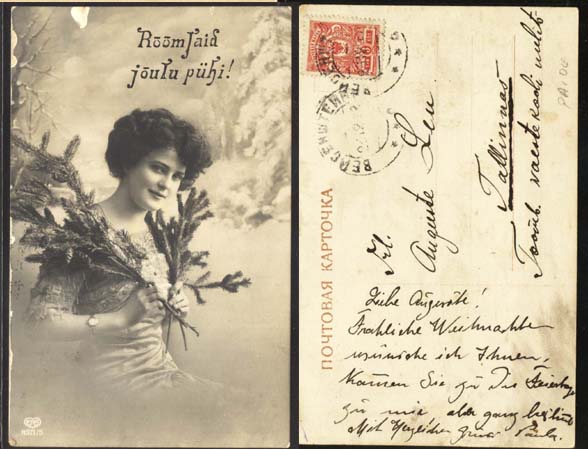 Rõõmsaid
jõulu pühi!
ПОЧТОВАЯ КАРТОЧКА
ВЕЙСЕНШТЕЙН
Frl.
Auguste Leu
Tallinnas
Toomb. vaestekooli
Liebe Auguste!
Fröhliche Weihnachten
wünsche ich Ihnen.
Kommen Sie zu die Feiertage
zu mir aber ganz bestimmt
Mit Herzlichem Gruss Paula.